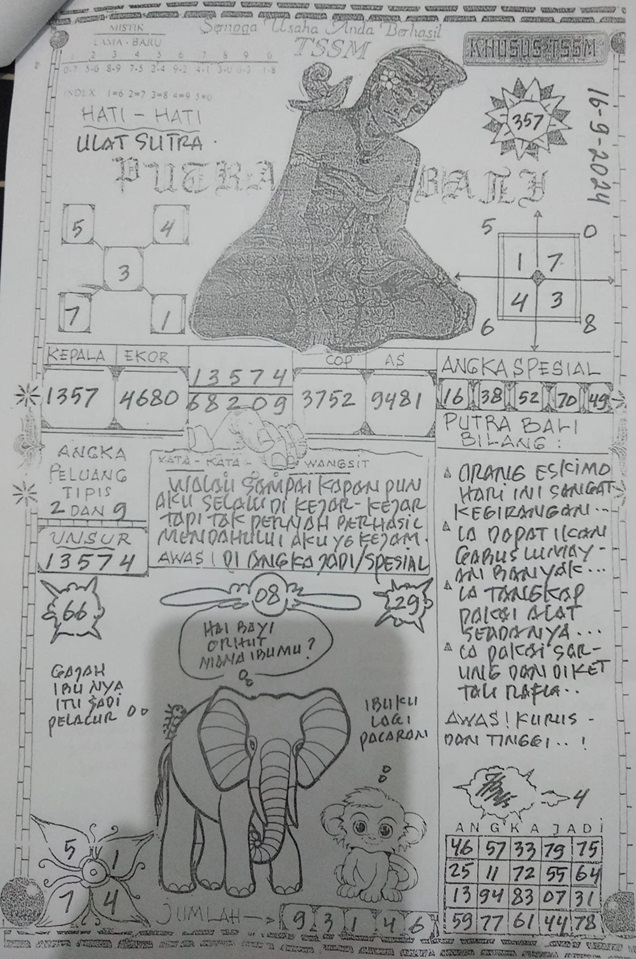 MISTIK
LAMA - BARU
Semoga Usaha Anda Berhasil
TSSM
KHUSUS TSSM
INDEX 1=6 2=7 3=8 4=9 5=0
HATI - HATI
ULAT SUTRA.
357
16-9-2024
PUTRA BALI
5 4
3
7 1
5 0
1 7
4 3
6 8
KEPALA EKOR
COP AS
1357 4680
13574
68209
3752 9481
ANGKA SPESIAL
16 38 52 70 49
ANGKA
PELUANG
TIPIS
2 DAN 9
UNSUR
13574
KATA - KATA WANGSIT
WALAU SAMPAI KAPAN PUN
AKU SELALU DI KEJAR-KEJAR
TAPI TAK PERNAH BERHASIL
MENDAHULUI AKU YG KEJAM.
AWAS! DI ANGKA JADI/SPESIAL
PUTRA BALI
BILANG:
ORANG ESKIMO
HARI INI SANGAT
KEGIRANGAN..
IA DAPAT IKAN
GABUS LUMAY-
AN BANYAK...
IA TANGKAP
PAKAI ALAT
SEADANYA...
IA PAKAI SAR-
UNG DAN DIKET
TALI RAFIA..
AWAS! KURUS -
DAN TINGGI..!
66
08
29
HAI BAYI
MANA IBUMU?
GAJAH
IBU NYA
ITU JADI
PELACUR
IBUKU
LAGI
PACARAN
5 1
7 4
JUMLAH 9 3 1 4 6
4
ANGKA JADI
46 57 33 79 75
25 11 72 55 64
13 94 83 07 31
59 77 61 44 78